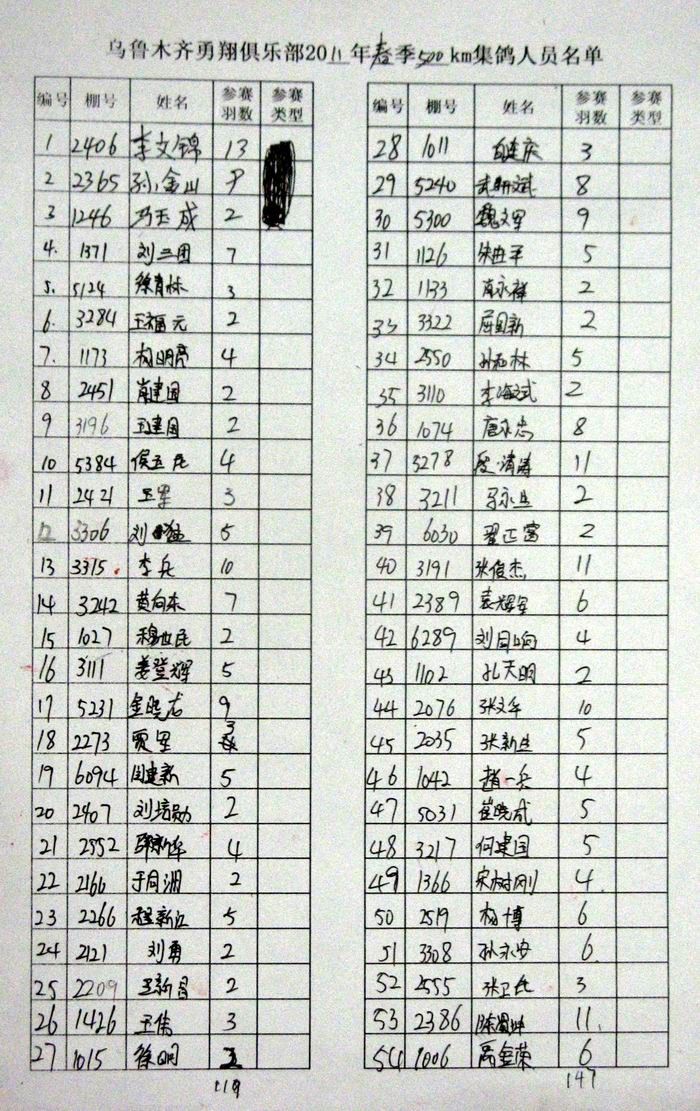 乌鲁木齐勇翔俱乐部2011年春季500km集鸽人员名单
编号 棚号 姓名 参赛羽数 参赛类型
1 2406 李文锦 13
2 2365 孙金山
3 1246 冯玉成 2
4. 1371 刘三团 7
5. 5124 徐青林 3
6. 3284 王福元 2
7. 1173 杨明亮 4
8 2451 肖建国 2
9 3196 王建国 2
10 5384 侯玉民 4
11 2421 王军 3
12 3306 刘 5
13 3315 李兵 10
14 3242 黄向东 7
15 1027 穆世民 2
16 3111 姜登辉 5
17 5231 金晓龙 9
18 2273 贾军 3
19 6094 闫建新 5
20 2407 刘培勋 2
21 2552 新华 4
22 2166 于同洲 2
23 2266 程新江 5
24 2121 刘勇 2
25 2209 王新昌 2
26 1426 王伟 3
27 1015 徐明
119
编号 棚号 姓名 参赛羽数 参赛类型
28 1011 建庆 3
29 5240 武明斌 8
30 5300 魏文军 9
31 1126 朱世平 5
32 1133 南永祥 2
33 3322 屈国新 2
34 2550 孙林 5
35 3110 李海斌 2
36 1074 唐永忠 8
37 5278 段清涛 11
38 3211 马永生 2
39 6030 翟正富 2
40 3191 张俊杰 11
41 2389 袁辉军 6
42 6289 刘月响 4
43 1102 孔天明 2
44 2076 张文华 10
45 2035 张新生 5
46 1042 赵兵 4
47 5031 崔晓成 5
48 3217 何建国 5
49 1366 宋树刚 4
50 2519 杨博 6
51 3308 孙永安 6
52 2555 张卫民 3
53 2386 陈国坤 11
54 1006 高金荣 6
147